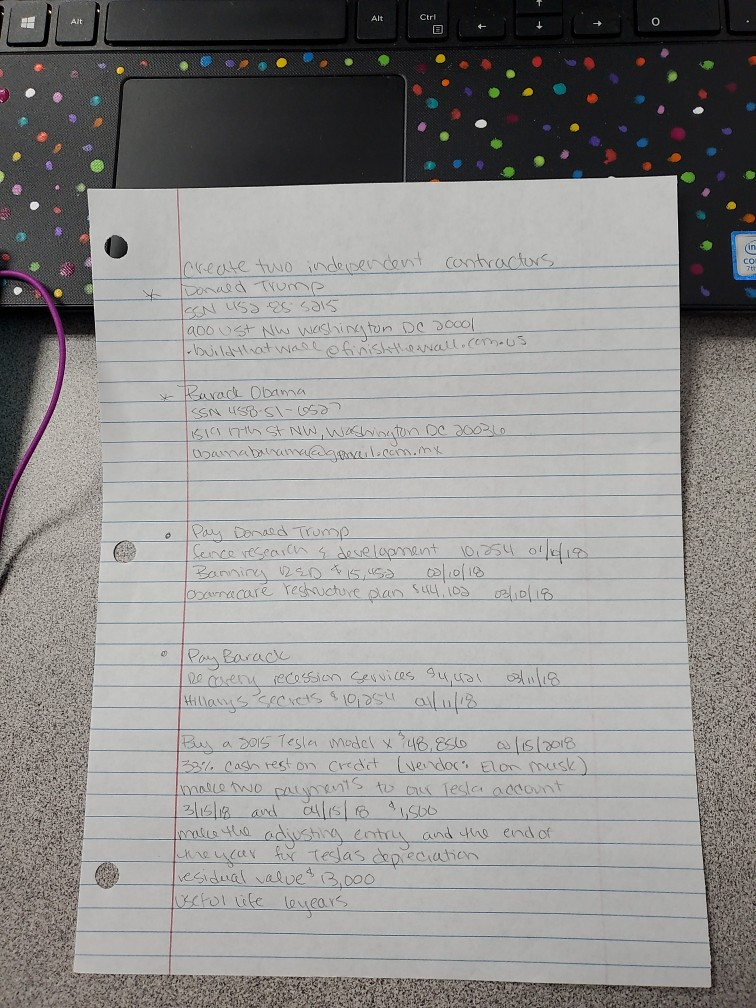 Alt
Alt
Ctrl
create two independent contractors
Donald Trump
SSN 452 85-5215
900 U St NW Washington DC 20001
buildthatwall@finishthewall.com.us
Barack Obama
SSN 458-51-6527
1519 17th St NW, Washington DC 20036
obamabanama@gmail.com.mx
Pay Donald Trump
fence research & development 10,254 01/10/18
Banning R&D $15,452 02/10/18
Obamacare restructure plan $44,102 03/10/18
Pay Barack
Recovery recession services $4,421 03/11/18
Hillary's secrets $10,254 01/11/18
Buy a 2015 Tesla Model x $48,856 02/15/2018
38% cash rest on credit (vendor: Elon Musk)
make two payments to our Tesla account
3/15/18 and 04/15/18 $1,500
make the adjusting entry and the end of
the year for Teslas depreciation
residual value $13,000
useful life 6years